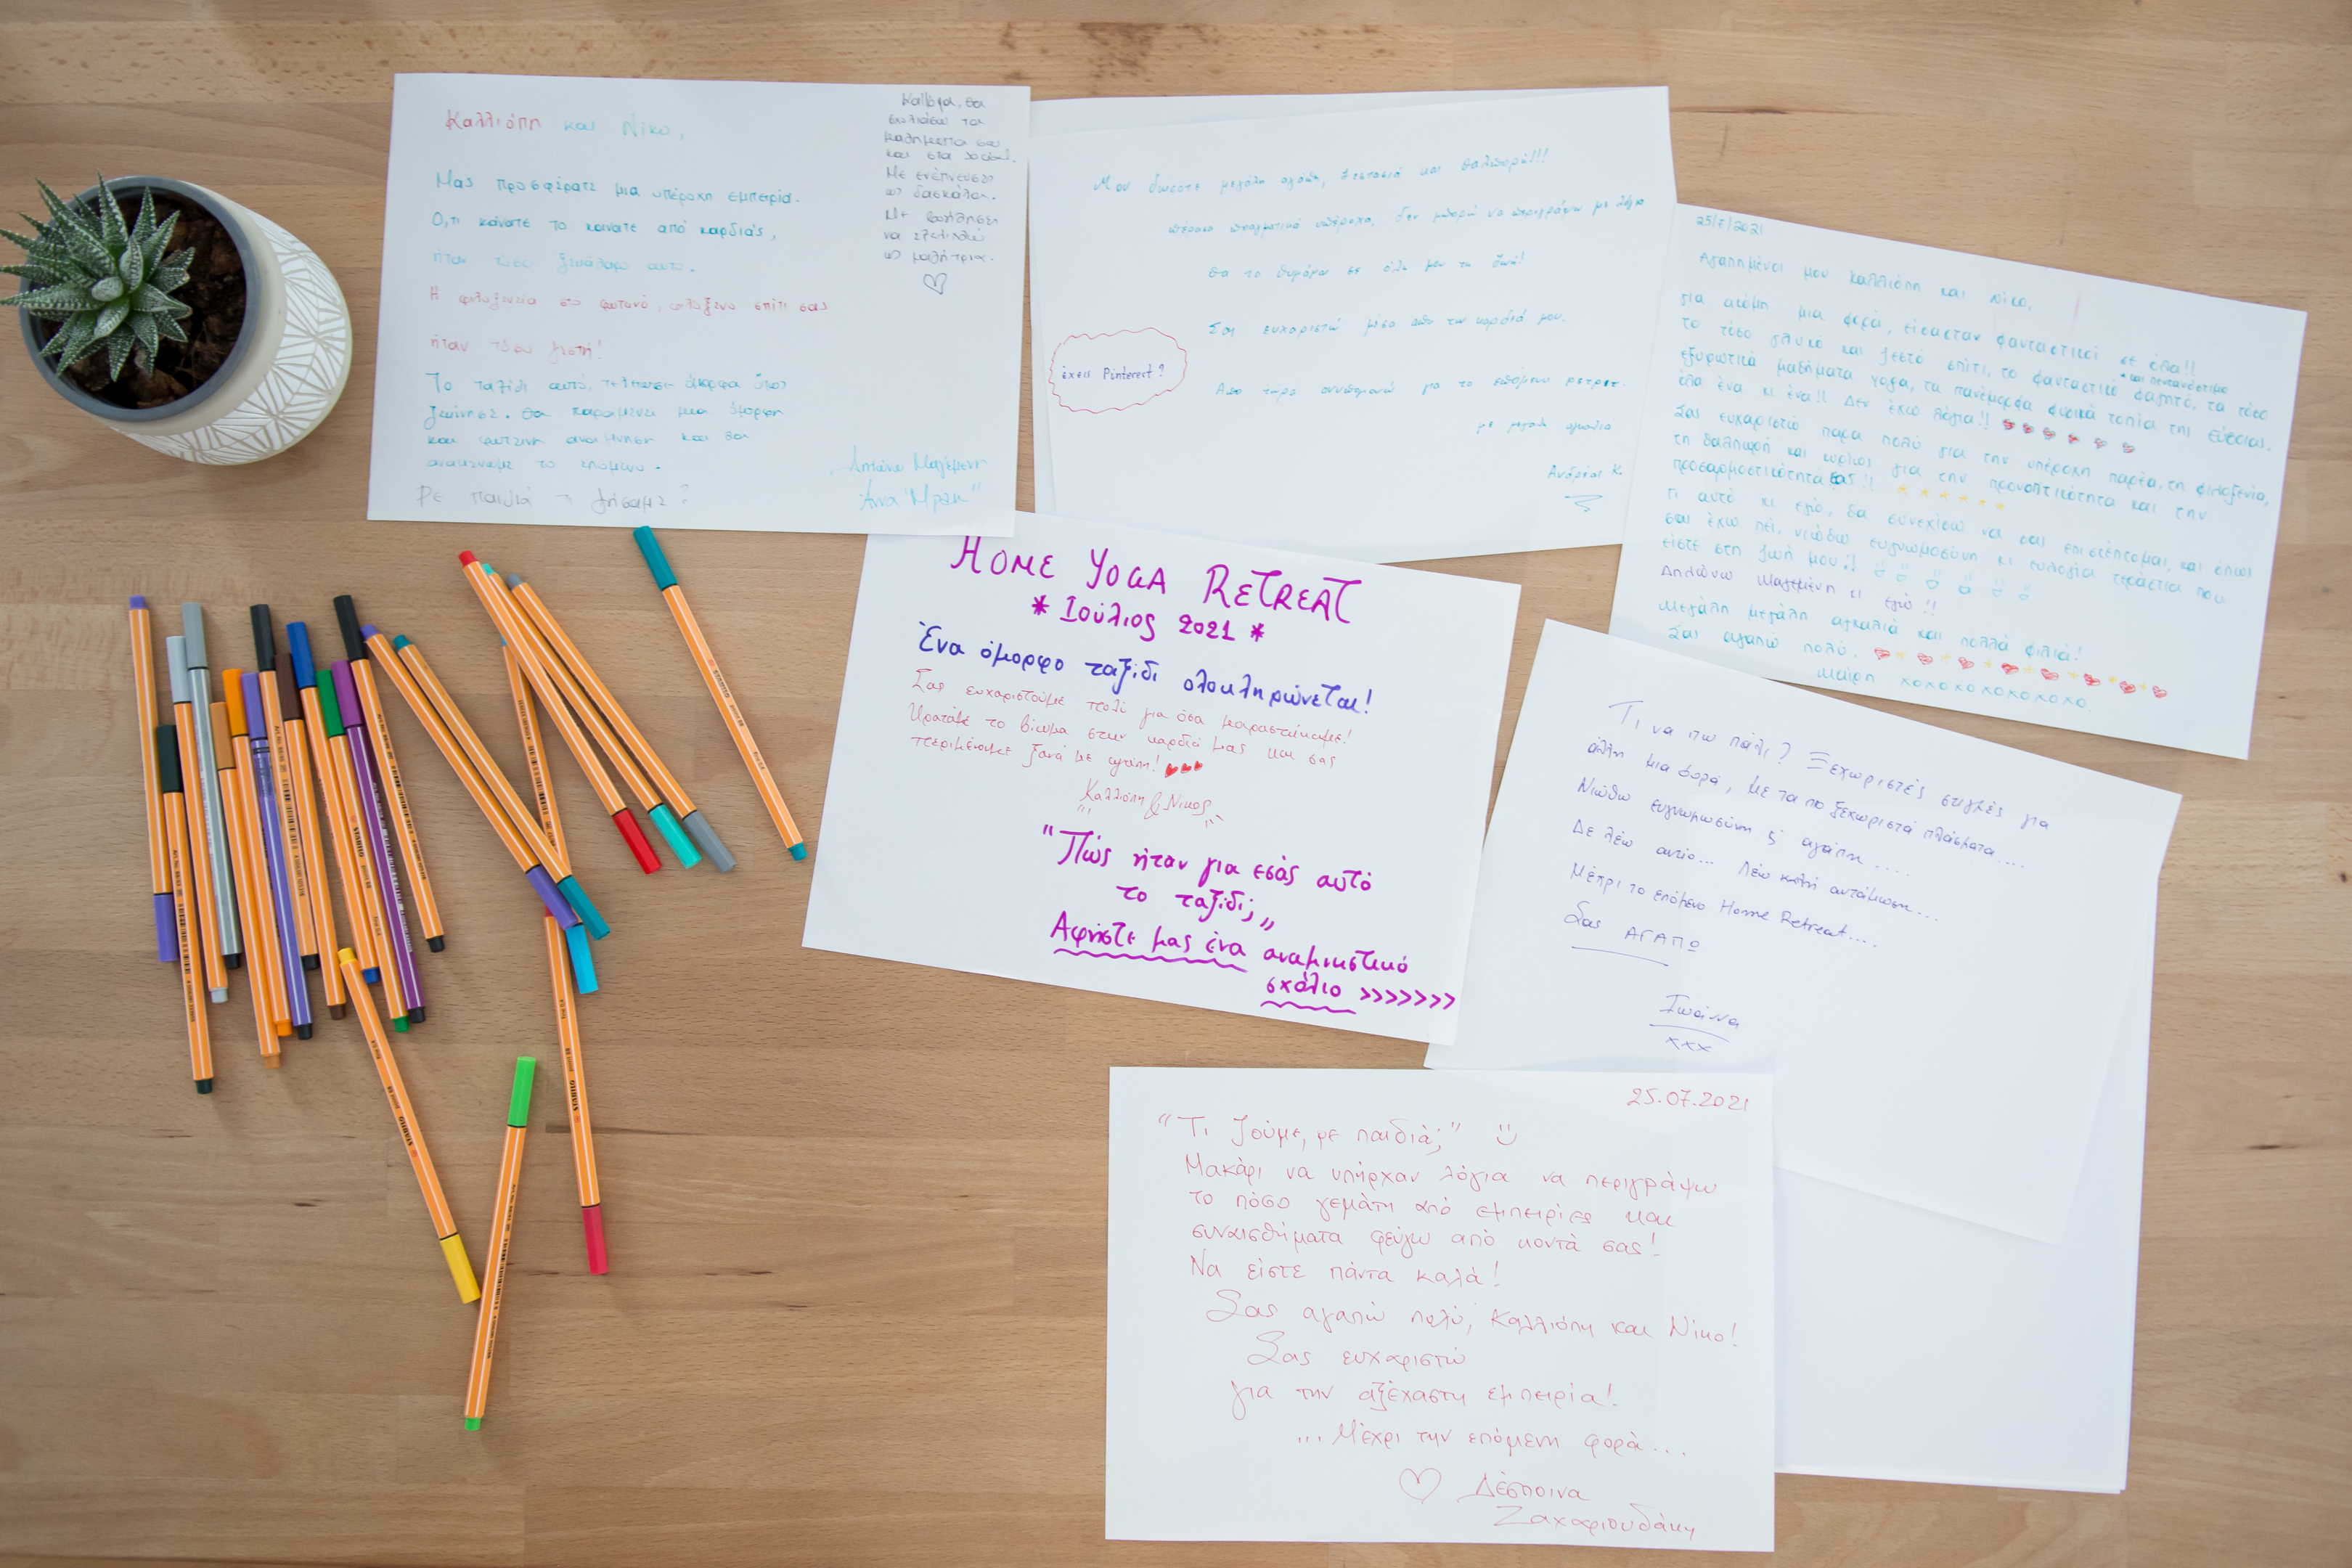 Καλλιόπη και Νίκο,
Μας προσφέρατε μια υπέροχη εμπειρία.
Ό,τι κάνατε το κάνατε από καρδιάς,
ήταν τόσο ξεκάθαρο αυτό.
Η φιλοξενία στο φωτεινό, φιλόξενο σπίτι σας
ήταν τόσο ζεστή!
Το ταξίδι αυτό, τελείωσε όμορφα όπως
ξεκίνησε. Θα παραμείνει μια όμορφη
και φωτεινή ανάμνηση και θα
ανανεώνουμε το επόμενο.
Ρε παιδιά τι ζήσαμε?
θα
σχολιάσω τα
μαθήματα σου
και στα social.
Με ενέπνευσες
ως δασκάλα.
Με βοήθησες
να εξελιχθώ
ως μαθήτρια.
Απλώνω Μαγεμένη
Άννα "Μπεκ"
Μου δώσατε μεγάλη αγάπη, ζεστασιά και θαλπωρή!!!
πέρασα πραγματικά υπέροχα, δεν μπορώ να περιγράψω με λόγια
θα το θυμάμαι σε όλη μου τη ζωή!
Σας ευχαριστώ μέσα από την καρδιά μου.
έχεις Pinterest?
Απο τώρα ανυπομονώ για το επόμενο ρετρητ.
με μεγάλη
Ανδρέας Κ.
25/7/2021
Αγαπημένοι μου Καλλιόπη και Νίκο,
για ακόμη μια φορά, είσασταν φανταστικοί σε όλα!!
το τόσο γλυκό και ζεστό σπίτι, το φανταστικό * και πεντανόστιμο φαγητό, τα τόσο
εξυρωτικά μαθήματα yoga, τα πανέμορφα φυσικά τοπία της Εύβοιας,
όλα ένα κι ένα!! Δεν έχω λόγια!!
Σας ευχαριστώ πάρα πολύ για την υπέροχη παρέα, τη φιλοξενία,
τη θαλπωρή και κυρίως για την προνοητικότητα και την
προσαρμοστικότητά σας!!
Γι αυτό κι εγώ, θα συνεχίσω να σας επισκέπτομαι, και όπως
σας έχω πει, νιώθω ευγνωμοσύνη κι ευλογία τεράστια που
είστε στη ζωή μου!!
Απλώνω Μαγεμένη κι εγώ!!
Μεγάλη μεγάλη αγκαλιά και πολλά φιλιά!
Σας αγαπώ πολύ.
Μαίρη xoxoxoxoxoxoxo.
HOME YOGA RETREAT
* Ιούλιος 2021 *
Ένα όμορφο ταξίδι ολοκληρώνεται!
Σας ευχαριστούμε πολύ για όσα μοιραστήκαμε!
Κρατάμε το βίωμα στην καρδιά μας και σας
περιμένουμε ξανά με αγάπη!
Καλλιόπη & Νίκος
"Πώς ήταν για εσάς αυτό
το ταξίδι;"
Αφήστε μας ένα αναμνηστικό
σχόλιο >>>>>>>
Τι να πω πάλι? Ξεχωριστές στιγμές για
άλλη μια φορά, με τα πιο ξεχωριστά πλάσματα....
Νιώθω ευγνωμοσύνη ς' αγάπη....
Δε λέω αντίο... Λέω καλή αντάμωση...
Μέχρι το επόμενο Home Retreat....
Σας ΑΓΑΠΩ
Ιωάννα
xxx
25.07.2021
"Τι ζούμε, ρε παιδιά;"
Μακάρι να υπήρχαν λόγια να περιγράψω
το πόσο γεμάτη από εμπειρίες και
συναισθήματα φεύγω από κοντά σας!
Να είστε πάντα καλά!
Σας αγαπώ πολύ, Καλλιόπη και Νίκο!
Σας ευχαριστώ
για την αξέχαστη εμπειρία!
...Μέχρι την επόμενη φορά...
Δέσποινα
Ζαχαριουδάκη
STABILO